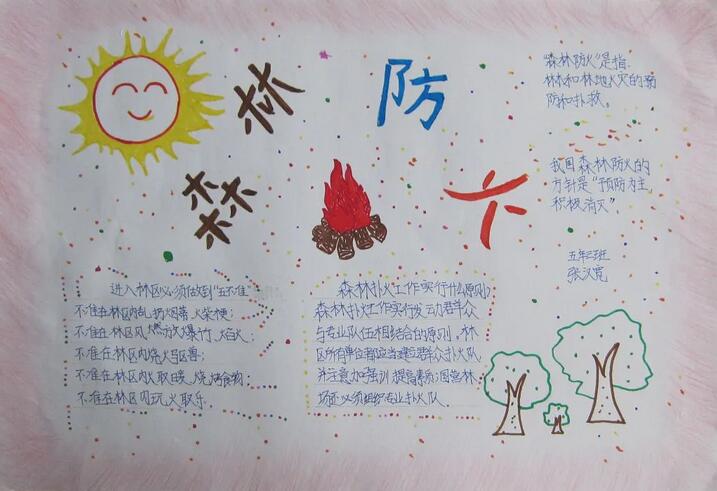 森林防火
"森林防火"是指
林和林地火灾的预
防和扑救。
我国森林防火的
方针是"预防为主,
积极消灭"
五年三班
张汉宽
进入林区必须做到"五不准"
不准在林区内乱扔烟蒂,火柴梗;
不准在林区风燃放爆竹,焰火;
不准在林区内烧火驱兽;
不准在林区内火取暖,烧烤食物;
不准在林区内玩火取乐.
森林扑火工作实行什么原则?
森林扑火工作实行发动群众
与专业队伍相结合的原则.林
区所有单位都应当建立群众扑火队
并注意加强训提高素质;国营林
场还必须组织专业扑火队.